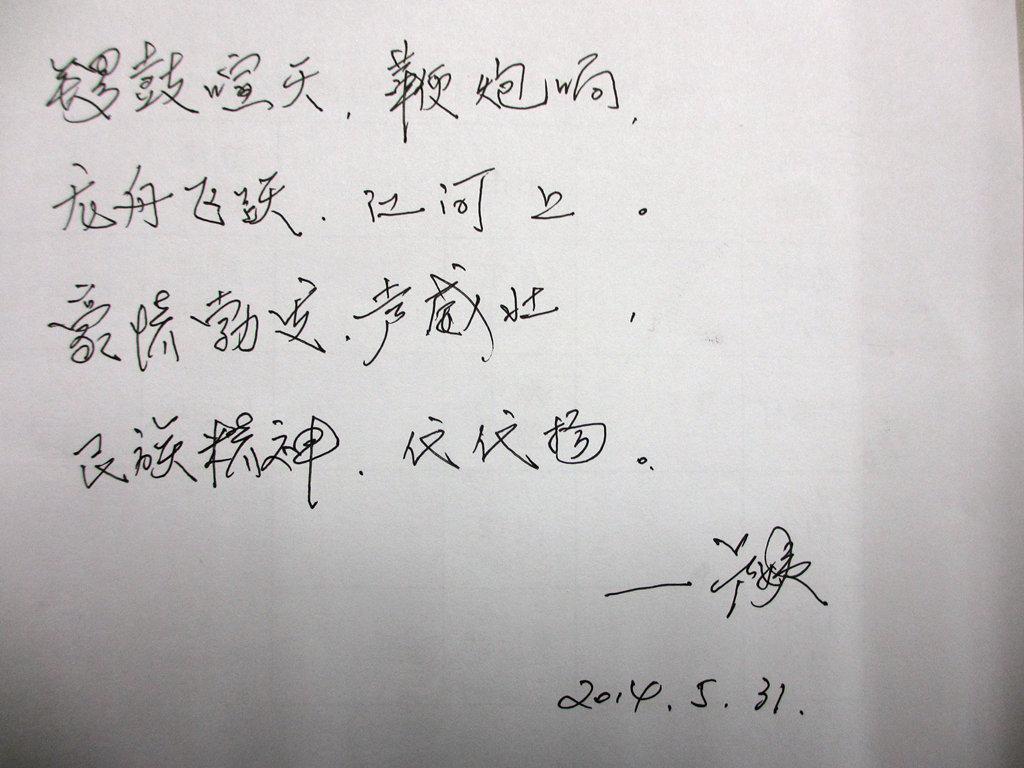 锣鼓喧天,鞭炮响,
龙舟飞跃,江河上。
豪情勃发,声威壮,
民族精神,代代扬。
一
2014.5.31.